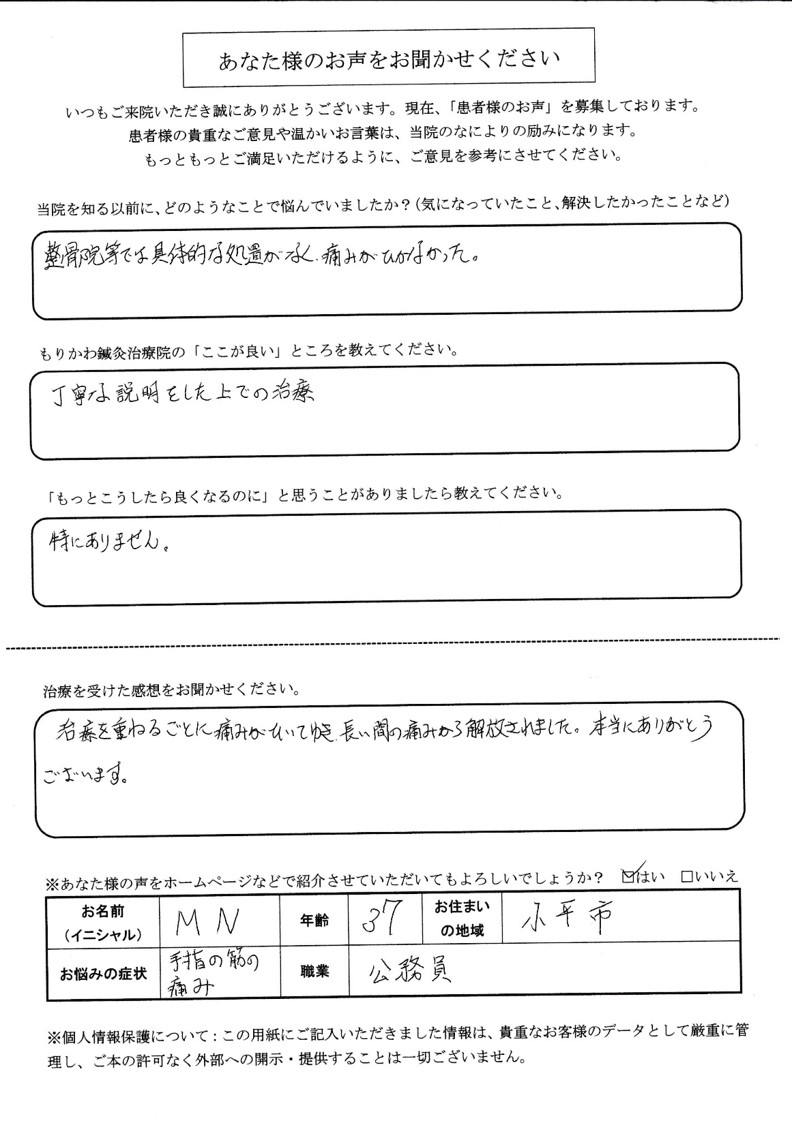 あなた様のお声をお聞かせください
いつもご来院いただき誠にありがとうございます。現在、「患者様のお声」を募集しております。
患者様の貴重なご意見や温かいお言葉は、当院のなによりの励みになります。
もっともっとご満足いただけるように、ご意見を参考にさせてください。
当院を知る以前に、どのようなことで悩んでいましたか？（気になっていたこと、解決したかったことなど）
整骨院等では具体的な処置がなく、痛みがひかなかった。
もりかわ鍼灸治療院の「ここが良い」ところを教えてください。
丁寧な説明をした上での治療
「もっとこうしたら良くなるのに」と思うことがありましたら教えてください。
特にありません。
治療を受けた感想をお聞かせください。
治療を重ねるごとに痛みがひいてゆき、長い間の痛みから解放されました。本当にありがとう
ございます。
※あなた様の声をホームページなどで紹介させていただいてもよろしいでしょうか？ ☑はい □いいえ
お名前（イニシャル） MN 年齢 37 お住まいの地域 小平市
お悩みの症状 手指の筋の痛み 職業 公務員
※個人情報保護について：この用紙にご記入いただきました情報は、貴重なお客様のデータとして厳重に管
理し、ご本の許可なく外部への開示・提供することは一切ございません。